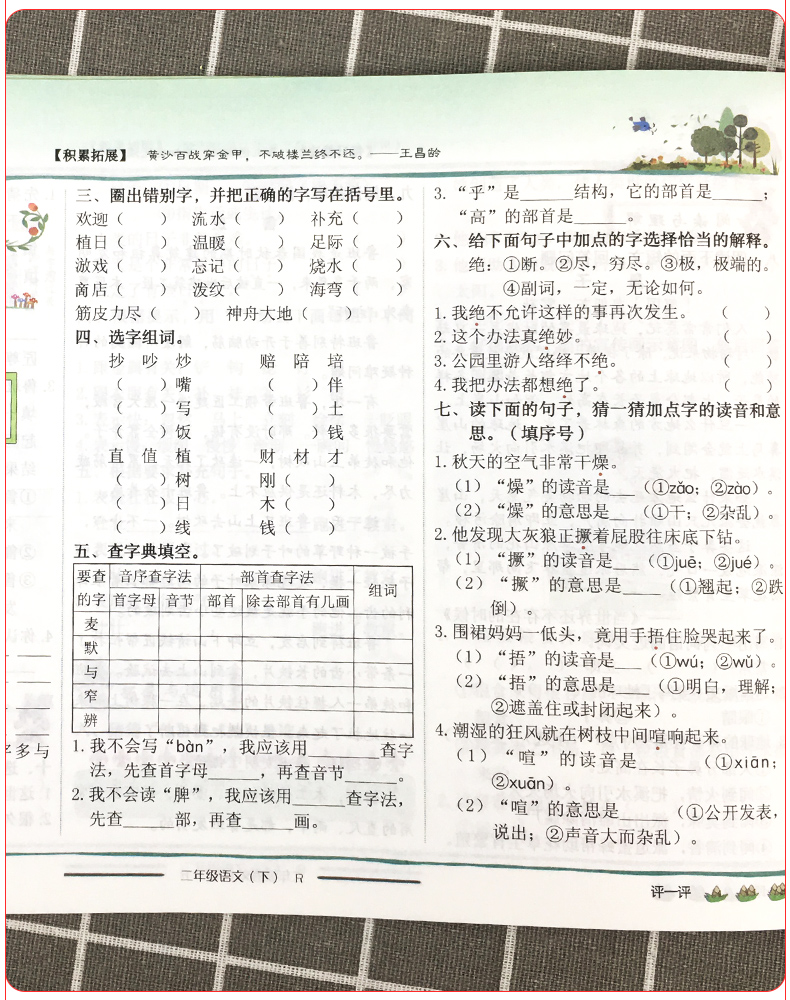 【积累拓展】 黄沙百战穿金甲，不破楼兰终不还。——王昌龄
三、圈出错别字，并把正确的字写在括号里。
欢迎（　　） 流水（　　） 补充（　　）
植日（　　） 温暖（　　） 足际（　　）
游戏（　　） 忘记（　　） 烧水（　　）
商店（　　） 泼纹（　　） 海弯（　　）
筋皮力尽（　　） 神舟大地（　　）
四、选字组词。
抄 吵 炒 赔 陪 培
（　　）嘴 （　　）伴
（　　）写 （　　）土
（　　）饭 （　　）钱
直 值 植 财 材 才
（　　）树 刚（　　）
（　　）日 木（　　）
（　　）线 钱（　　）
五、查字典填空。
要查的字 音序查字法 部首查字法 组词
首字母 音节 部首 除去部首有几画
麦
默
与
窄
辨
1. 我不会写“bàn”，我应该用______查字
法，先查首字母_____，再查音节_____。
2. 我不会读“脾”，我应该用_____查字法，
先查_____部，再查_____画。
3. “乎”是_____结构，它的部首是_____；
“高”的部首是_____。
六、给下面句子中加点的字选择恰当的解释。
绝：①断。②尽，穷尽。③极，极端的。
④副词，一定，无论如何。
1. 我绝不允许这样的事再次发生。 （　　）
2. 这个办法真绝妙。 （　　）
3. 公园里游人络绎不绝。 （　　）
4. 我把办法都想绝了。 （　　）
七、读下面的句子，猜一猜加点字的读音和意
思。（填序号）
1. 秋天的空气非常干燥。
（1）“燥”的读音是___（①zǎo；②zào）。
（2）“燥”的意思是___（①干；②杂乱）。
2. 他发现大灰狼正撅着屁股往床底下钻。
（1）“撅”的读音是___（①juē；②jué）。
（2）“撅”的意思是___（①翘起；②跌
倒）。
3. 围裙妈妈一低头，竟用手捂住脸哭起来了。
（1）“捂”的读音是___（①wú；②wǔ）。
（2）“捂”的意思是___（①明白，理解；
②遮盖住或封闭起来）。
4. 潮湿的狂风就在树枝中间喧响起来。
（1）“喧”的读音是_____（①xiān；
②xuān）。
（2）“喧”的意思是_____（①公开发表，
说出；②声音大而杂乱）。
字多与
三年级语文（下） R
评一评